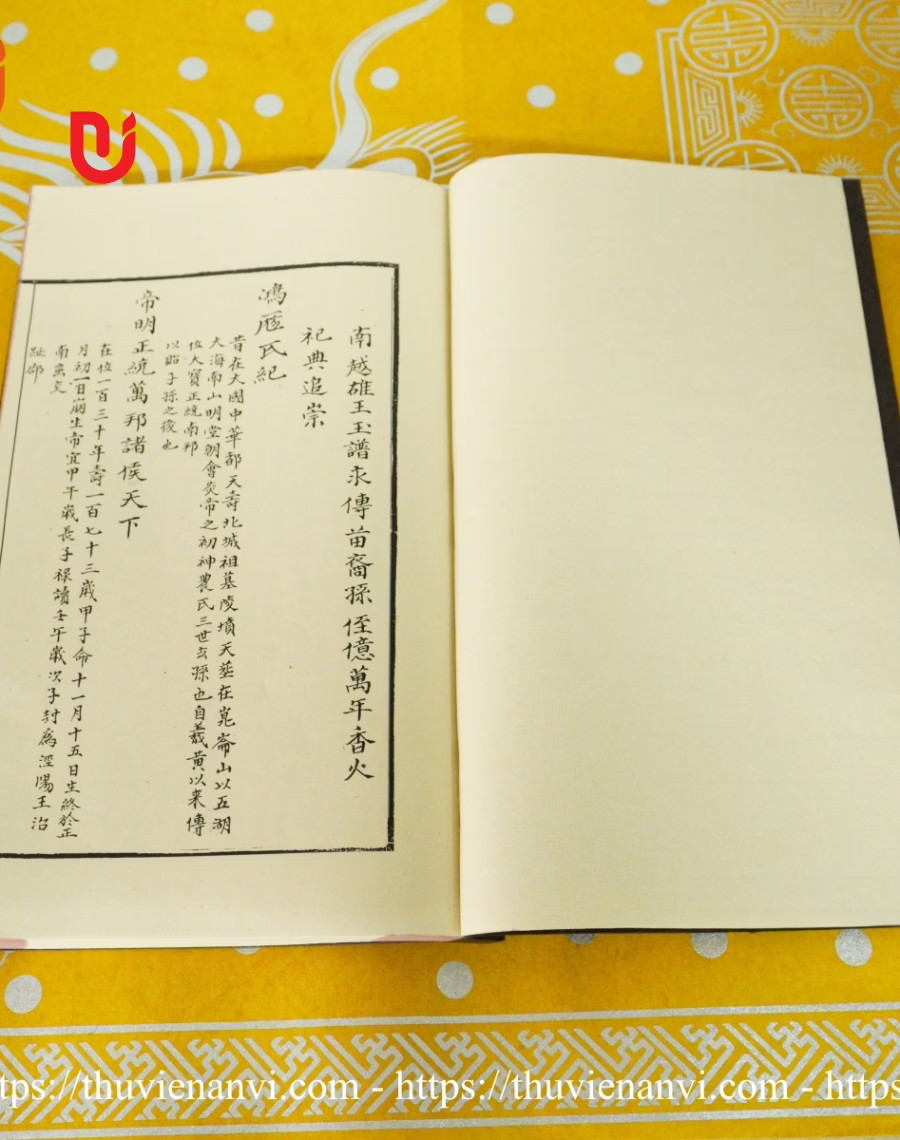 南越雄王玉譜永傳苗裔孫侄億萬年香火
祀典追崇
鴻厖氏紀
昔在大國中華都天壽北城祖墓陵墳天塟在崑崙山以五湖
大海南山明堂朝會炎帝之初神農氏三世玄孫也自羲黄以来傳
位大寶正統南邦
以昭子孫之後也
帝明正統萬邦諸侯天下
在位一百三十年壽一百七十三歲甲子命十一月十五日生終於正
月初一日崩生帝宜甲午歲長子禄讀壬午歲次子封爲涇陽王治
南蛮交
趾郡
https://thuvienanvi.com - https://thuvienanvi.com - https